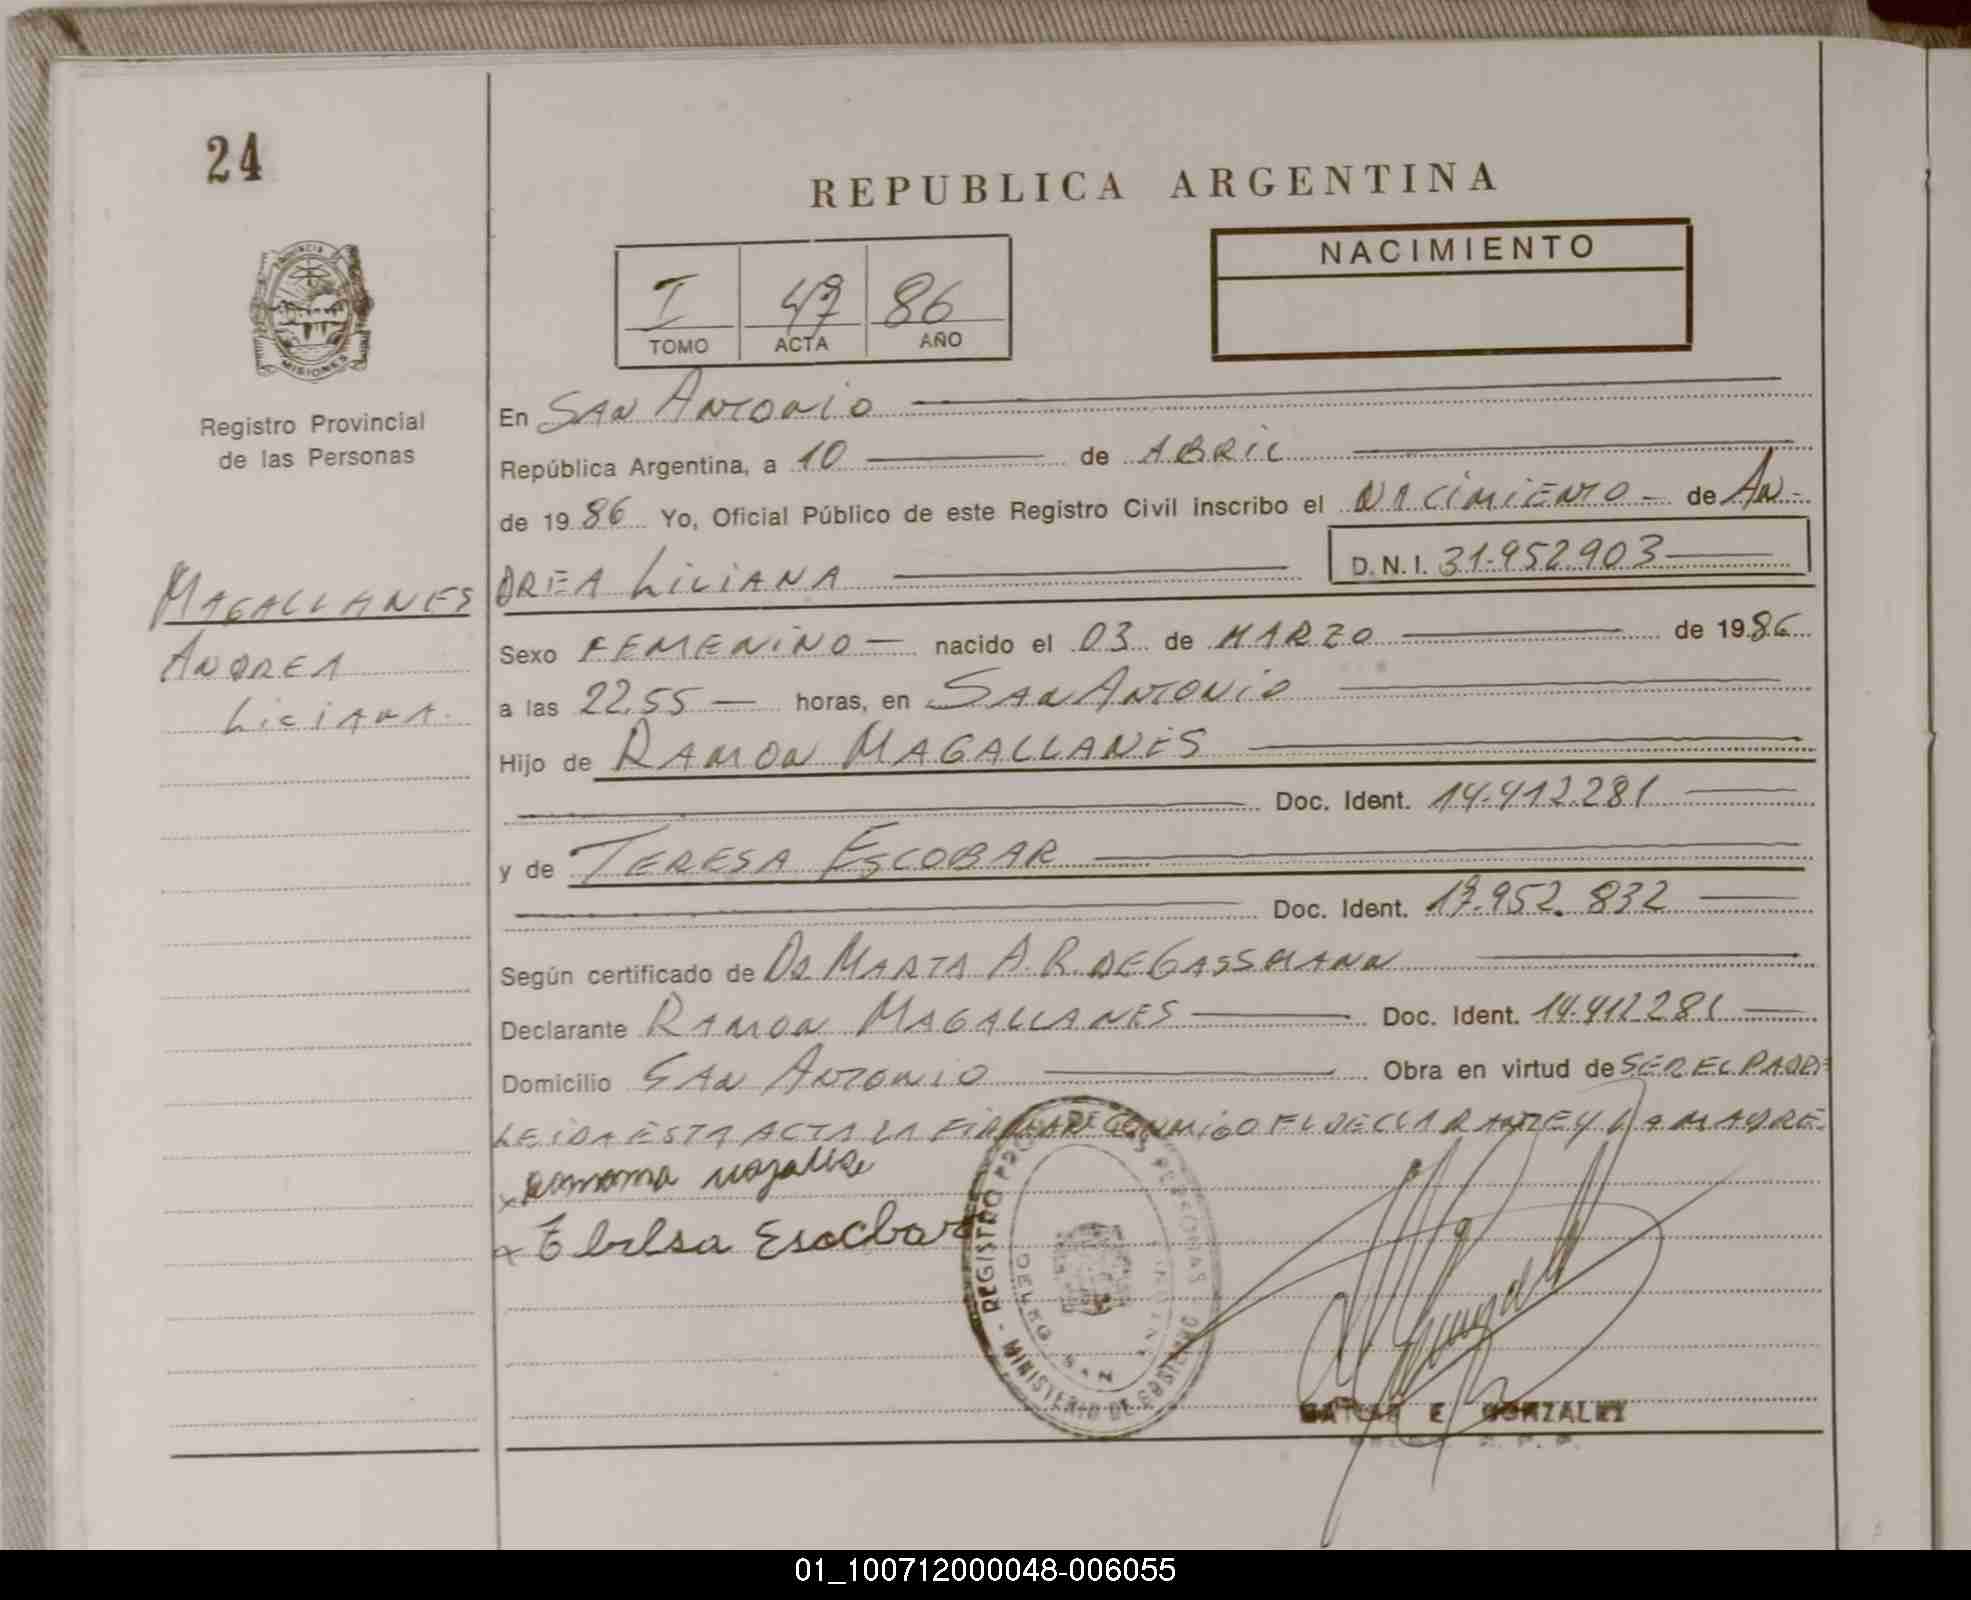 24
REPUBLICA ARGENTINA
NACIMIENTO
I 47 86
TOMO ACTA AÑO
PROVINCIA
MISIONES
Registro Provincial
de las Personas
MAGALLANES
ANDREA
LILIANA.
En SAN ANTONIO
República Argentina, a 10 de ABRIL
de 1986 Yo, Oficial Público de este Registro Civil inscribo el NACIMIENTO - de AN-
DREA LILIANA D.N.I. 31.952.903
Sexo FEMENINO nacido el 03 de MARZO de 1986
a las 22.55 horas, en SAN ANTONIO
Hijo de RAMON MAGALLANES
Doc. Ident. 14.412.281
y de TERESA ESCOBAR
Doc. Ident. .952.832
Según certificado de MARTA A.R. DE GASSMANN
Declarante RAMON MAGALLANES Doc. Ident. 14.412.281
Domicilio SAN ANTONIO Obra en virtud de SER EL PADRE
LEIDA ESTA ACTA LA FIRMAN CONMIGO EL DECLARANTE Y LA MADRE.
x
x Escobar
REGISTRO DE PERSONAS
MINISTERIO DE GOBIERNO
DELEG. SAN
E. GONZALEZ
01_100712000048-006055